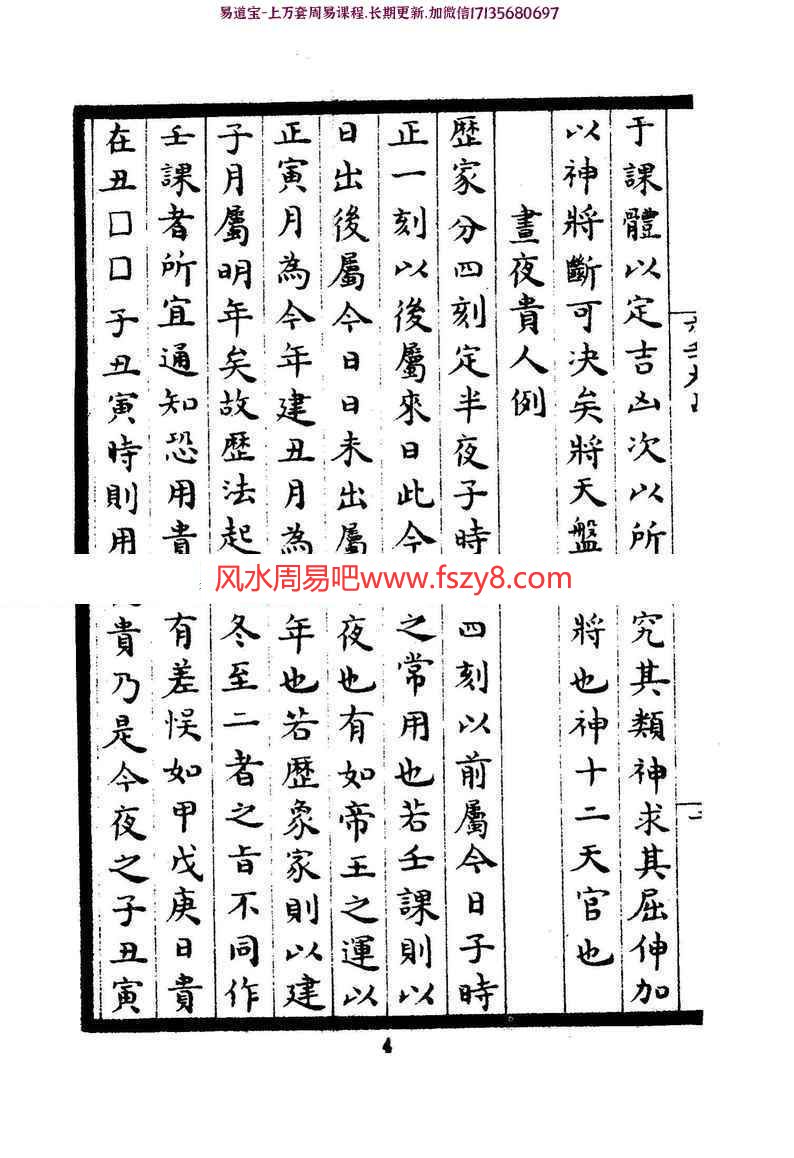 易道宝-上万套周易课程.长期更新.加微信17135680697
于課體以定吉凶次以所究其類神求其屈伸加
以神將斷可决矣將天盤將也神十二天官也
晝夜貴人例
歷家分四刻定半夜子時四刻以前屬今日子時
正一刻以後屬來日此今之常用也若壬課則以
日出後屬今日日未出屬夜也有如帝王之運以
正寅月為今年建丑月為年也若歷象家則以建
子月屬明年矣故歷法起冬至二者之旨不同作
壬課者所宜通知恐用貴有差悮如甲戊庚日貴
在丑□□子丑寅時則用貴乃是今夜之子丑寅
风水周易吧www.fszy8.com
二
4